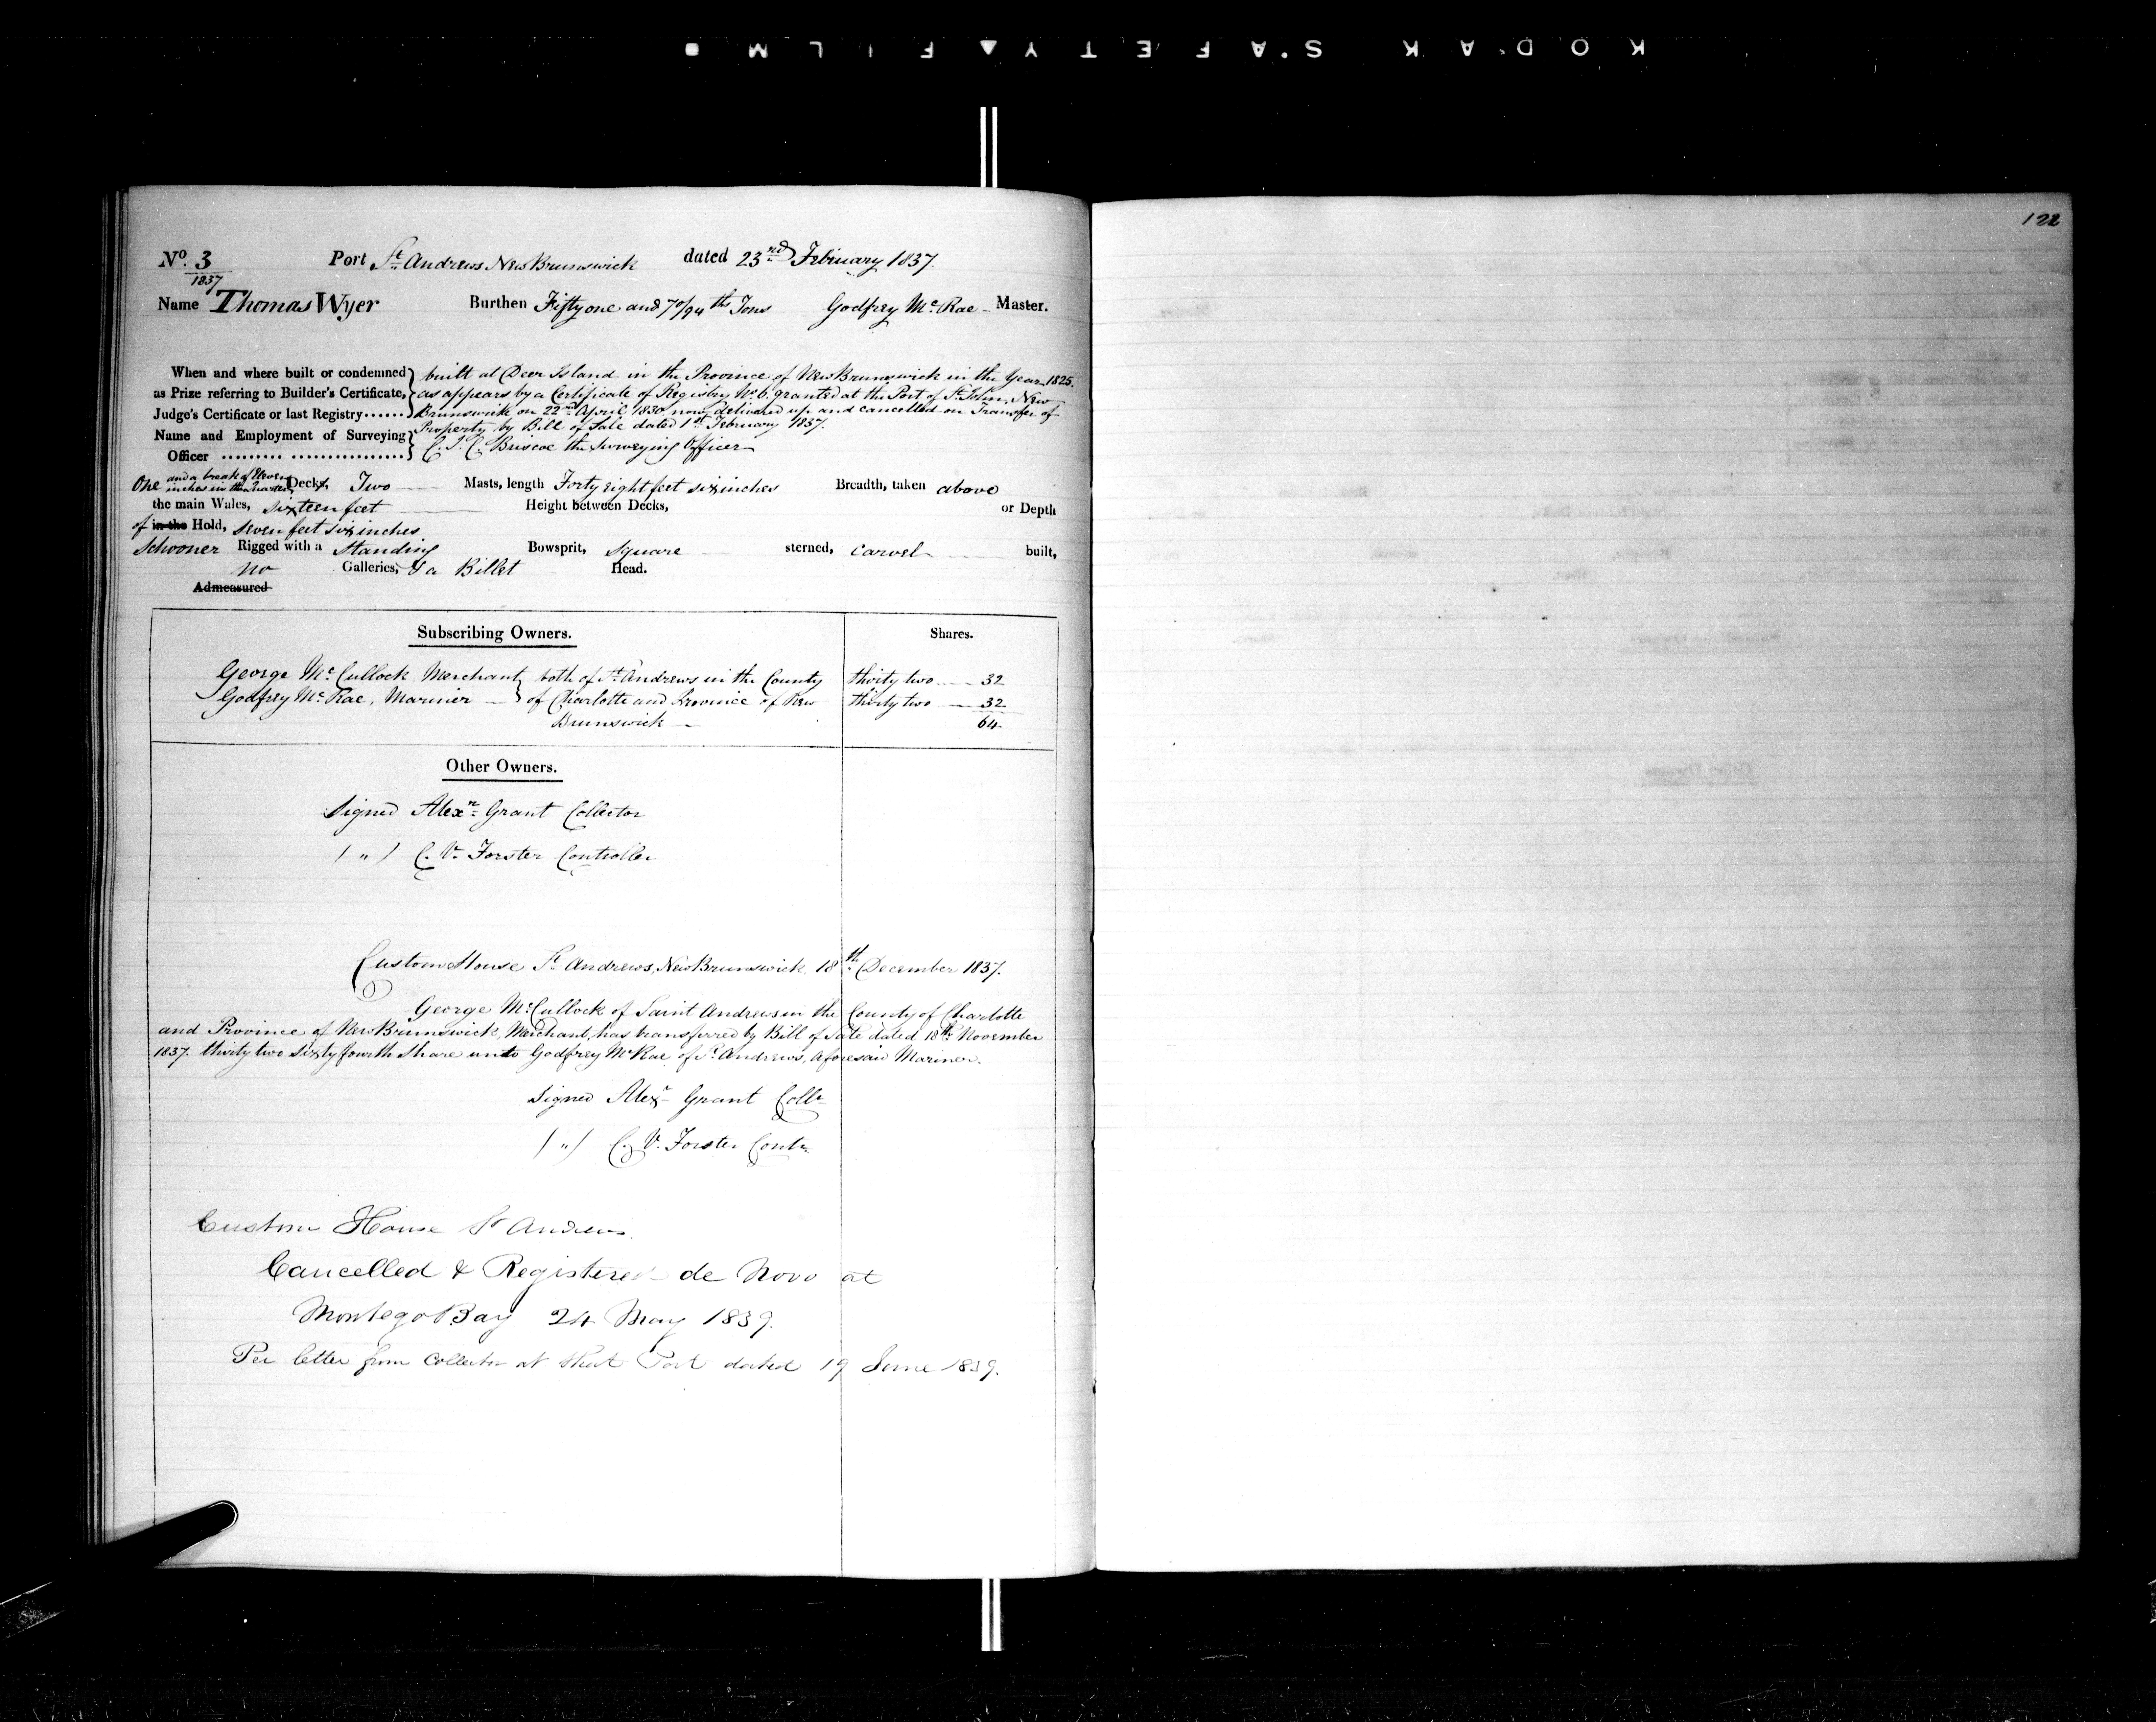 KODAK SAFETY▲FILM
122
No. 3 Port St. Andrews New Brunswick dated 23rd February 1837.
1837
Name Thomas Wyer Burthen Fifty one and 70/94th Tons Godfrey McRae - Master.
When and where built or condemned built at Deer Island in the Province of New Brunswick in the Year 1825.
as Prize referring to Builder's Certificate, as appears by a Certificate of Registry No. 6. granted at the Port of St. John, New
Judge's Certificate or last Registry...... Brunswick on 22nd April 1830 now delivered up and cancelled on Transfer of
Property by Bill of Sale dated 1st February 1837.
Name and Employment of Surveying
Officer ......... ................ C. J. C. Briscoe the Surveying Officer
One and a break of Eleven inches in the Quarter Decks, Two Masts, length Forty eight feet six inches Breadth, taken above
the main Wales, sixteen feet Height between Decks, or Depth
of in the Hold, seven feet six inches
Schooner Rigged with a Standing Bowsprit, Square sterned, Carvel built,
no Galleries, & a Billet Head.
Admeasured
Subscribing Owners. Shares.
George McCullock Merchant both of St. Andrews in the County thirty two 32
Godfrey McRae, Mariner of Charlotte and Province of New thirty two 32
Brunswick 64
Other Owners.
Signed Alexr. Grant Collector
( " ) C. V. Forster Controller
Custom House St. Andrews, New Brunswick 18th December 1837.
George McCullock of Saint Andrews in the County of Charlotte
and Province of New Brunswick, Merchant, has transferred by Bill of Sale dated 18th November
1837. thirty two Sixty fourth Share unto Godfrey McRae of St. Andrews, aforesaid Mariner.
Signed Alexr. Grant Collr
( " ) C. V. Forster Contr.
Custom House St Andrews
Cancelled & Registered de Novo at
Montego Bay 24 May 1839.
Per letter from Collector at that Port dated 19 June 1839.